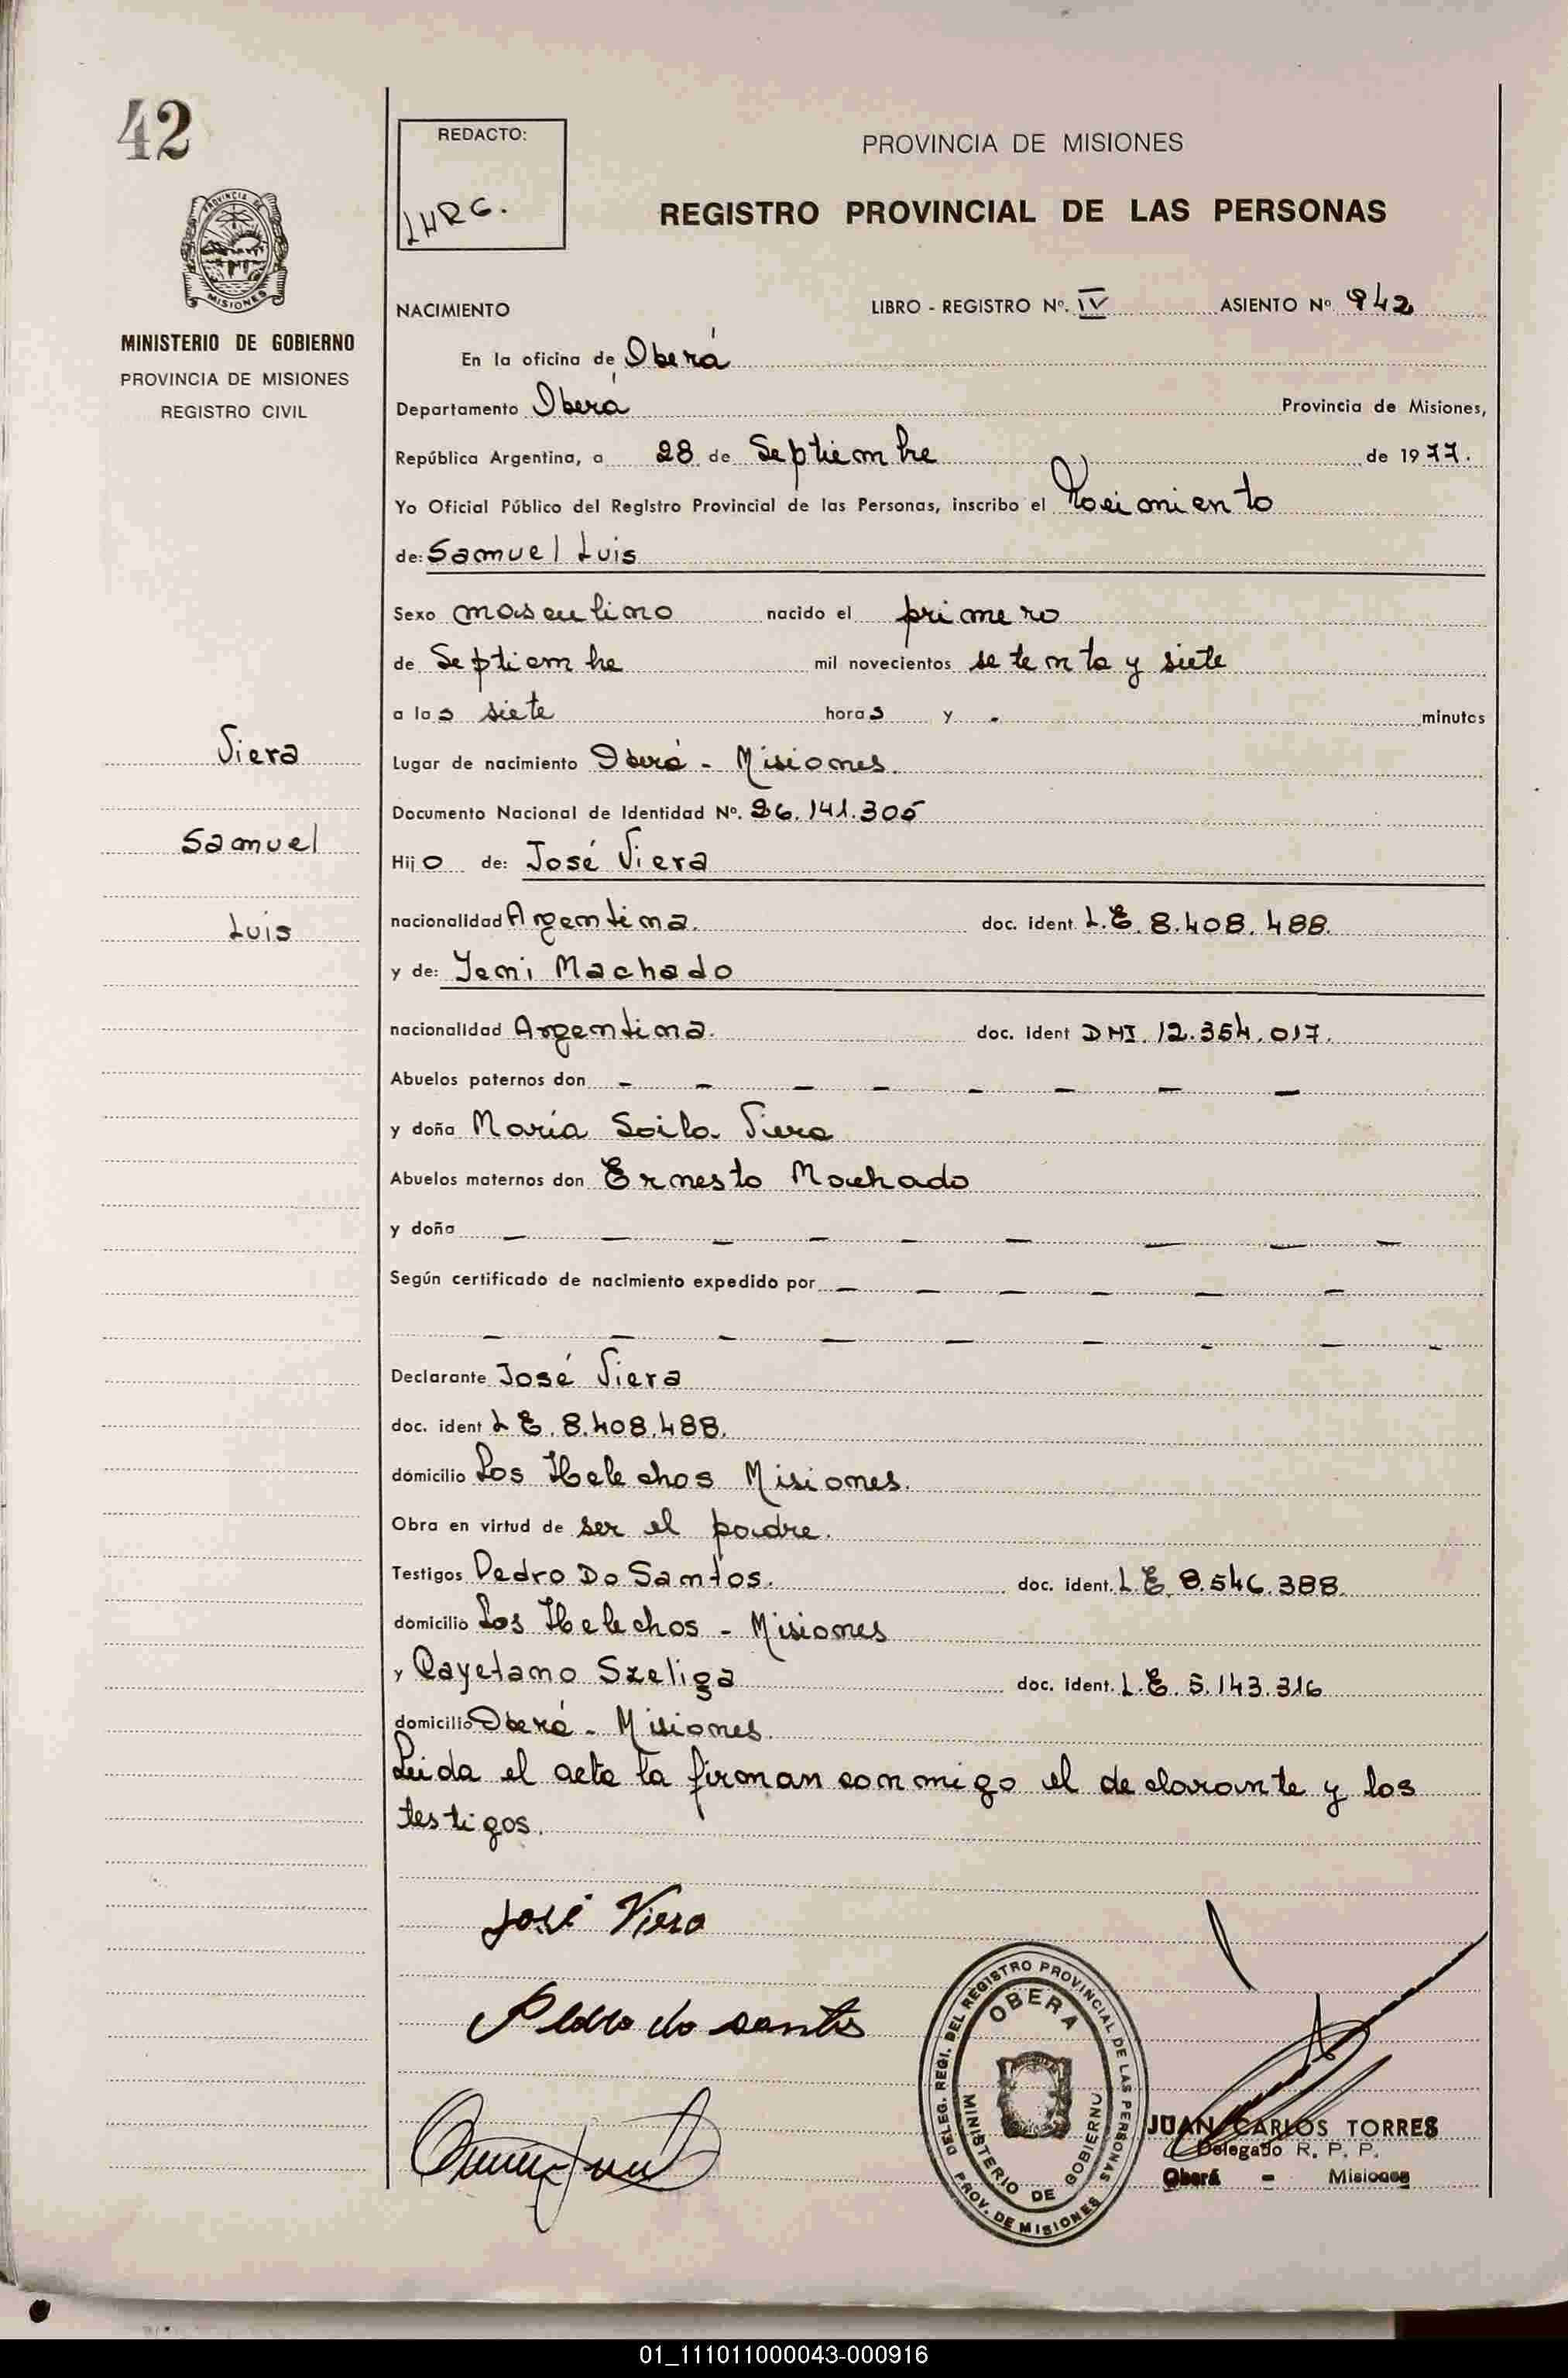 42
REDACTO:
LHRG.
PROVINCIA DE MISIONES
REGISTRO PROVINCIAL DE LAS PERSONAS
PROVINCIA DE
MISIONES
MINISTERIO DE GOBIERNO
PROVINCIA DE MISIONES
REGISTRO CIVIL
NACIMIENTO LIBRO - REGISTRO Nº. IV ASIENTO Nº 942
En la oficina de Oberá
Departamento Oberá Provincia de Misiones,
República Argentina, a 28 de Septiembre de 1977.
Yo Oficial Público del Registro Provincial de las Personas, inscribo el Nacimiento
de: Samuel Luis
Sexo masculino nacido el primero
de Septiembre mil novecientos setenta y siete
a las siete horas y - minutos
Viera
Samuel
Luis
Lugar de nacimiento Oberá - Misiones.
Documento Nacional de Identidad Nº. 26.141.305
Hijo de: José Viera
nacionalidad Argentina. doc. ident. L.E. 8.408.488.
y de: Yeni Machado
nacionalidad Argentina. doc. ident DNI. 12.354.017.
Abuelos paternos don - - - - - - - -
y doña María Soila Viera
Abuelos maternos don Ernesto Machado
y doña - - - - - - - - -
Según certificado de nacimiento expedido por - - - - - -
- - - - - - - - -
Declarante José Viera
doc. ident L E. 8.408.488.
domicilio Los Helechos Misiones.
Obra en virtud de ser el padre.
Testigos Pedro Do Santos. doc. ident. L E. 8.546.388.
domicilio Los Helechos - Misiones
y Cayetano Szeliga doc. ident. L.E. 5.143.316
domicilio Oberá - Misiones.
Leida el acta la firman conmigo el declarante y los
testigos.
José Viera
Pedro do santos
DELEG. REGI. DEL REGISTRO PROVINCIAL DE LAS PERSONAS
OBERA
MINISTERIO DE GOBIERNO
PROV. DE MISIONES
JUAN CARLOS TORRES
Delegado R. P. P.
Oberá - Misiones
01_111011000043-000916